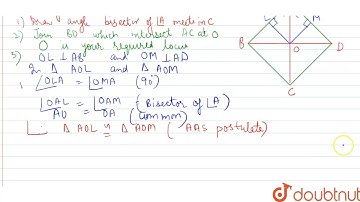 1) Draw angle bisector of ∠A meets in C
2) Join BD which intersect AC at O
O is your required locus
3) OL ⊥ AB and OM ⊥ AD
In Δ AOL and Δ AOM
∠OLA = ∠OMA (90°)
∠OAL = ∠OAM (Bisector of ∠A)
AO = OA (common)
Δ AOL ≅ Δ AOM (AAS postulate)
L M
B O D
C
doubtnut